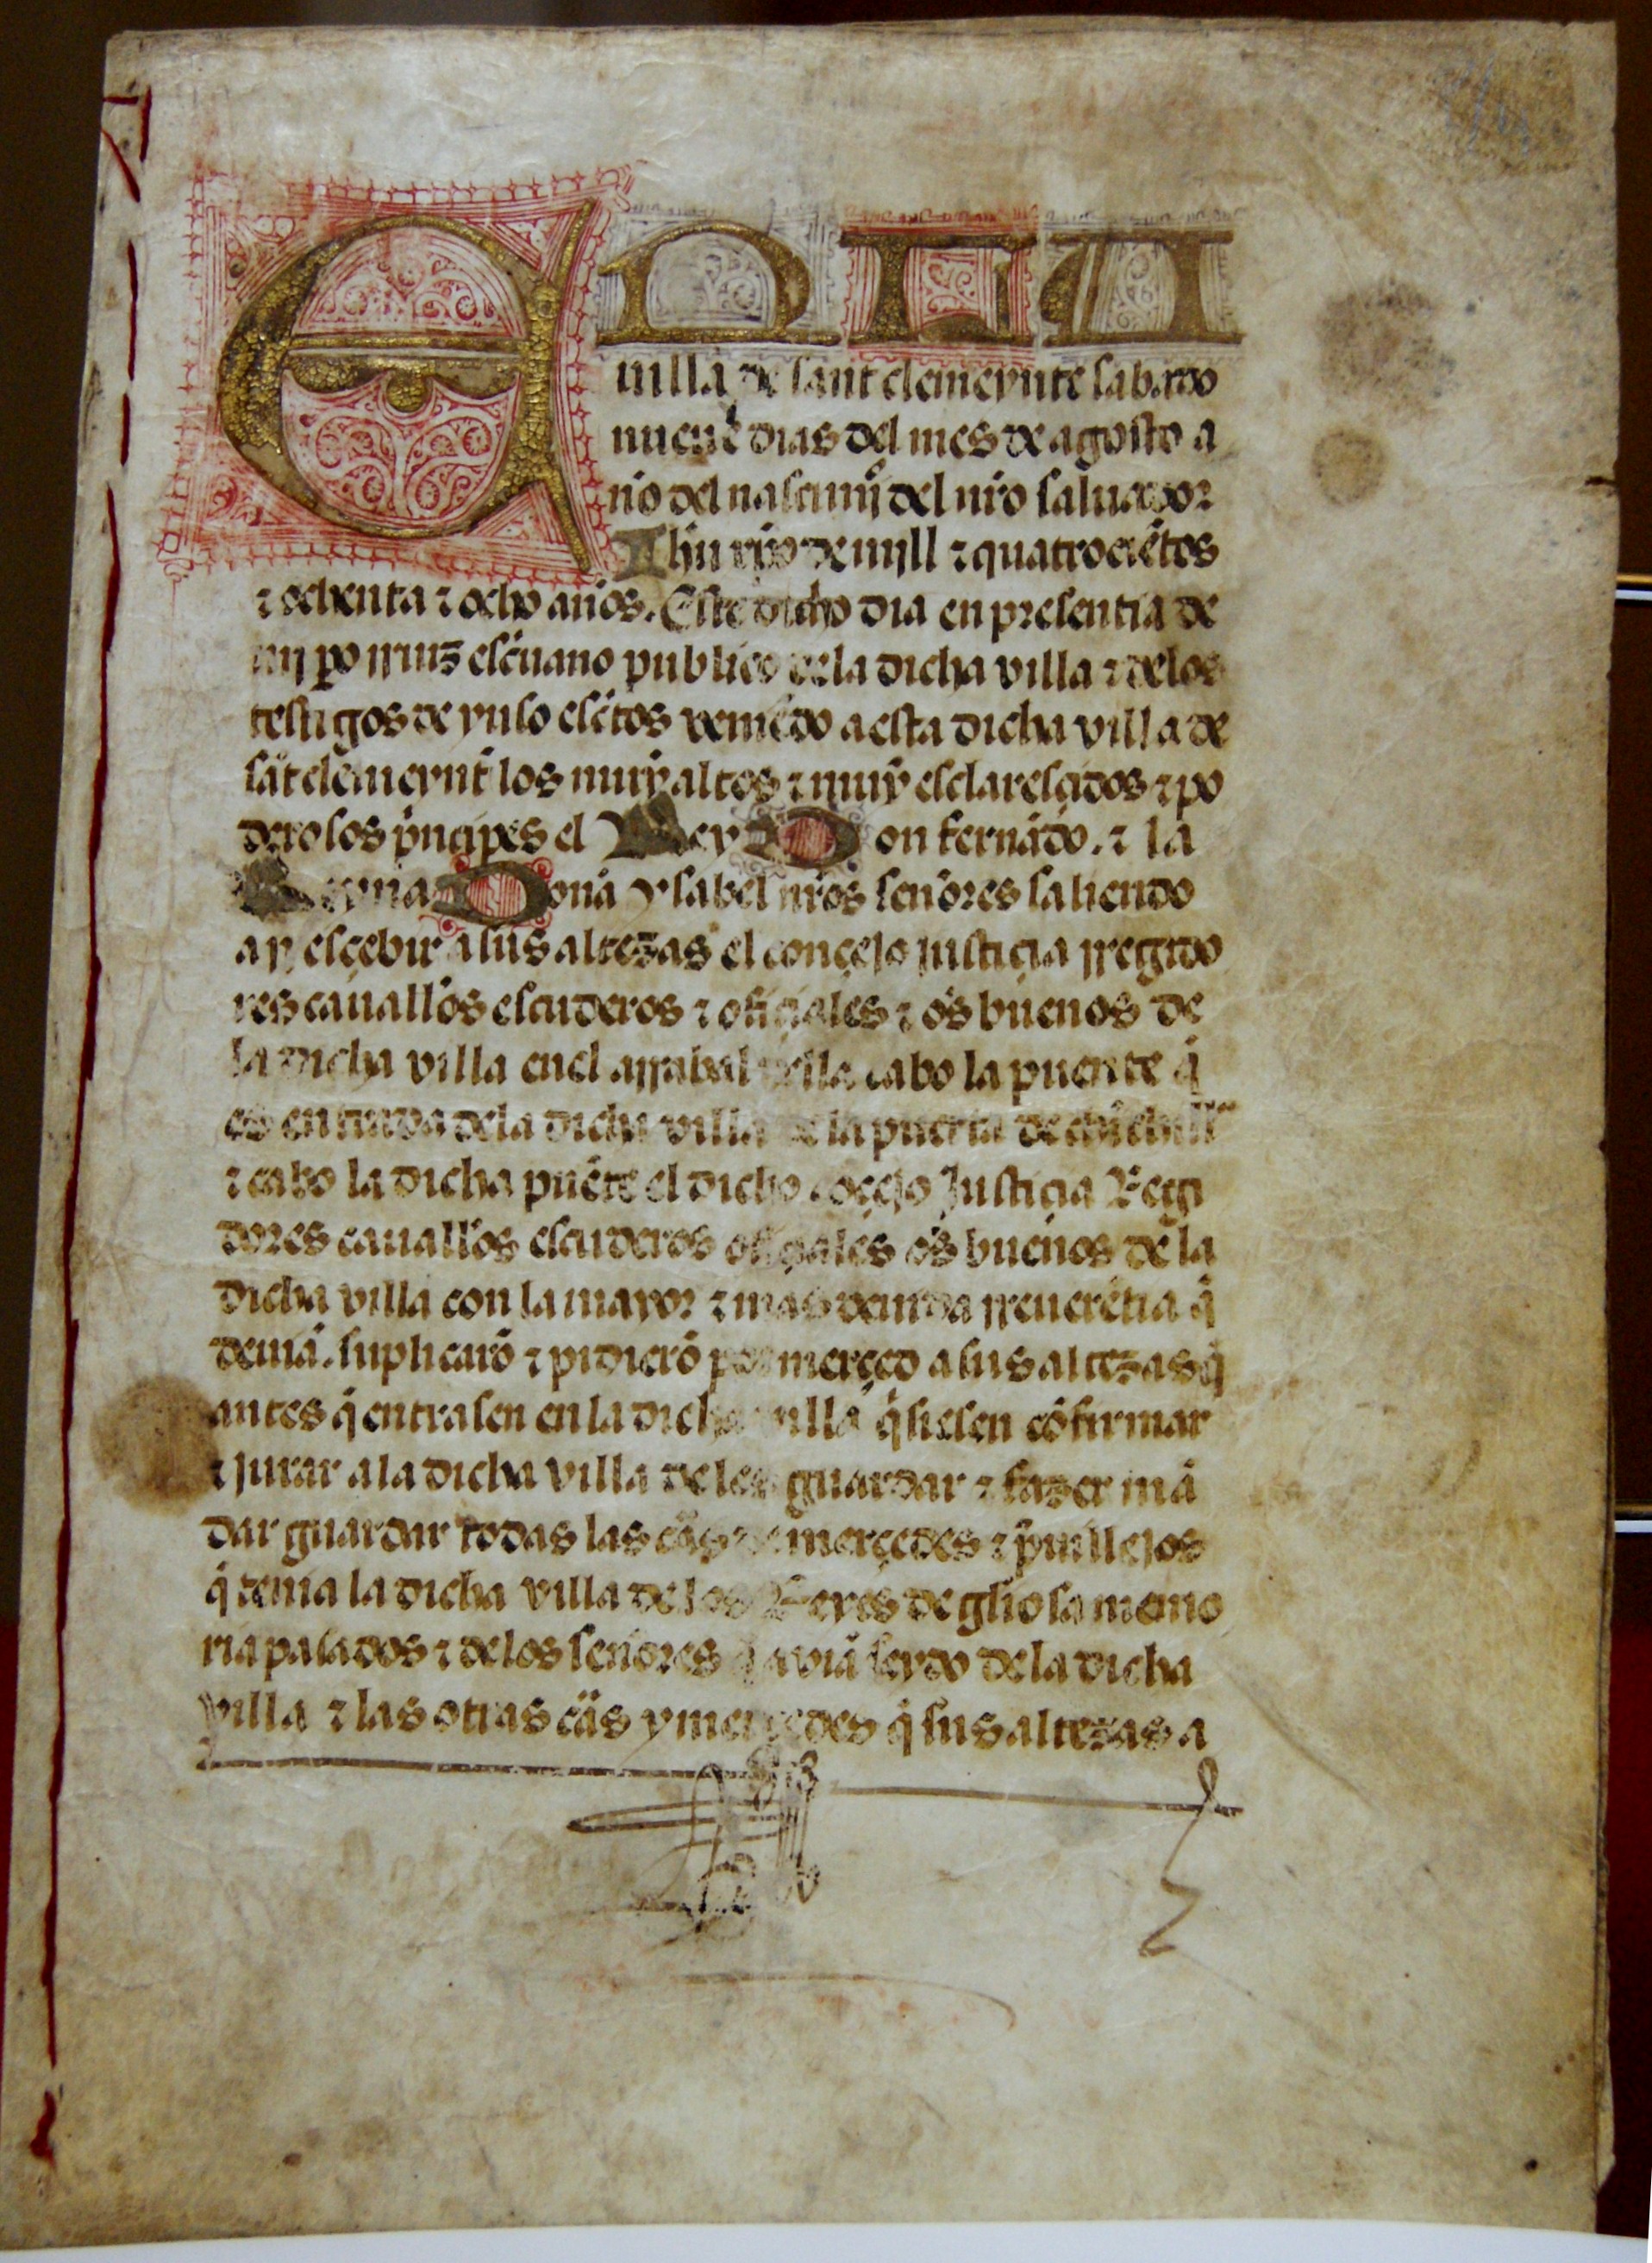 EN LA
uilla de sant clemeynte sabado
nueue dias del mes de agosto a
ño del nascimjº del nr̃o saluador
Ihũ xp̃o de mjll ⁊ quatroçiẽtos
⁊ ochenta ⁊ ocho años. Este dicho dia en presentia de
mj po rruiz escͥuano publico dela dicha villa ⁊ delos
testigos de yuso esc̃tos veniẽdo a esta dicha villa de
sãt clemeynt̃ los muy altos ⁊ muy esclaresçidos ⁊ po
derosos pͥnçipes el Rey Don fernãdo. ⁊ la
Reyna Doña ysabel nr̃os señores saliendo
a rresçebir a sus altezas el conçejo justiçia rregido
res cauallos̃ escuderos ⁊ ofiçiales ⁊ os̃ buenos de
la dicha villa enel arrabal della cabo la puente q̃
es entrada dela dicha villa la puerta de chĩchillª
⁊ cabo la dicha puẽte el dicho cõçejo Justiçia Regi
dores cauallos̃ escuderos ofiçiales os̃ buenos de la
dicha villa con la mayor ⁊ mas deuida rreuerẽtia q̃
deuiã. suplicarõ ⁊ pidierõ por merçed a sus altezas q̃
antes q̃ entrasen en la dicha uilla q̃siesen cõfirmar
⁊ jurar a la dicha villa de les guardar ⁊ fazer mã
dar guardar todas las cãs de merçedes ⁊ pͥuillejos
q̃ tenia la dicha villa de los Reyes de gl̃iosa memo
ria pasados ⁊ delos señores q̃ auiã seydo dela dicha
villa ⁊ las otras cãs y merçedes q̃ sus altezas a